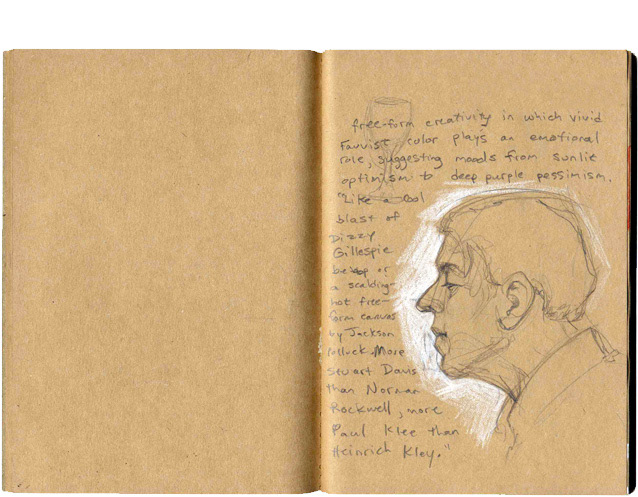 free-form creativity in which vivid
Fauvist color plays an emotional
role, suggesting moods from sunlit
optimism to deep purple pessimism.
"Like a cool
blast of
Dizzy
Gillespie
bebop or
a scalding-
hot free-
form canvas
by Jackson
Pollock. More
Stuart Davis
than Norman
Rockwell, more
Paul Klee than
Heinrich Kley."